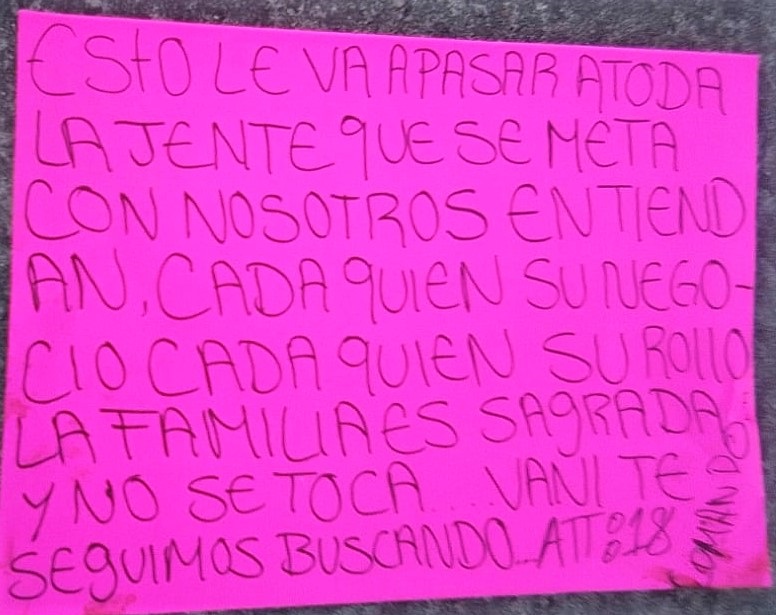 ESTO LE VA A PASAR A TODA
LA JENTE QUE SE META
CON NOSOTROS ENTIEND
AN, CADA QUIEN SU NEGO-
CIO CADA QUIEN SU ROLLO
LA FAMILIA ES SAGRADA
Y NO SE TOCA....VANI TE
SEGUIMOS BUSCANDO...ATT:18
COMANDO